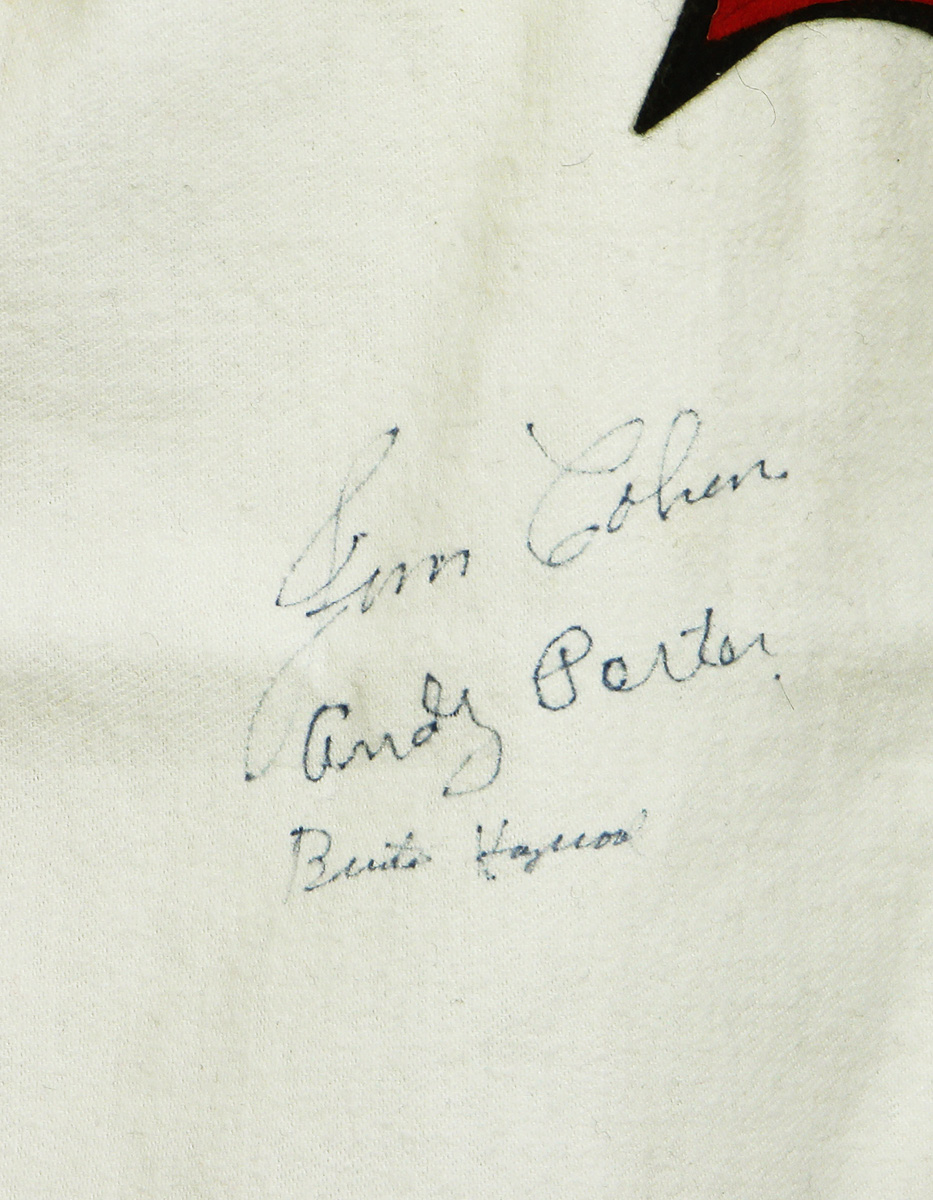 Jim Cohen
Andy Porter
Buster Haywood